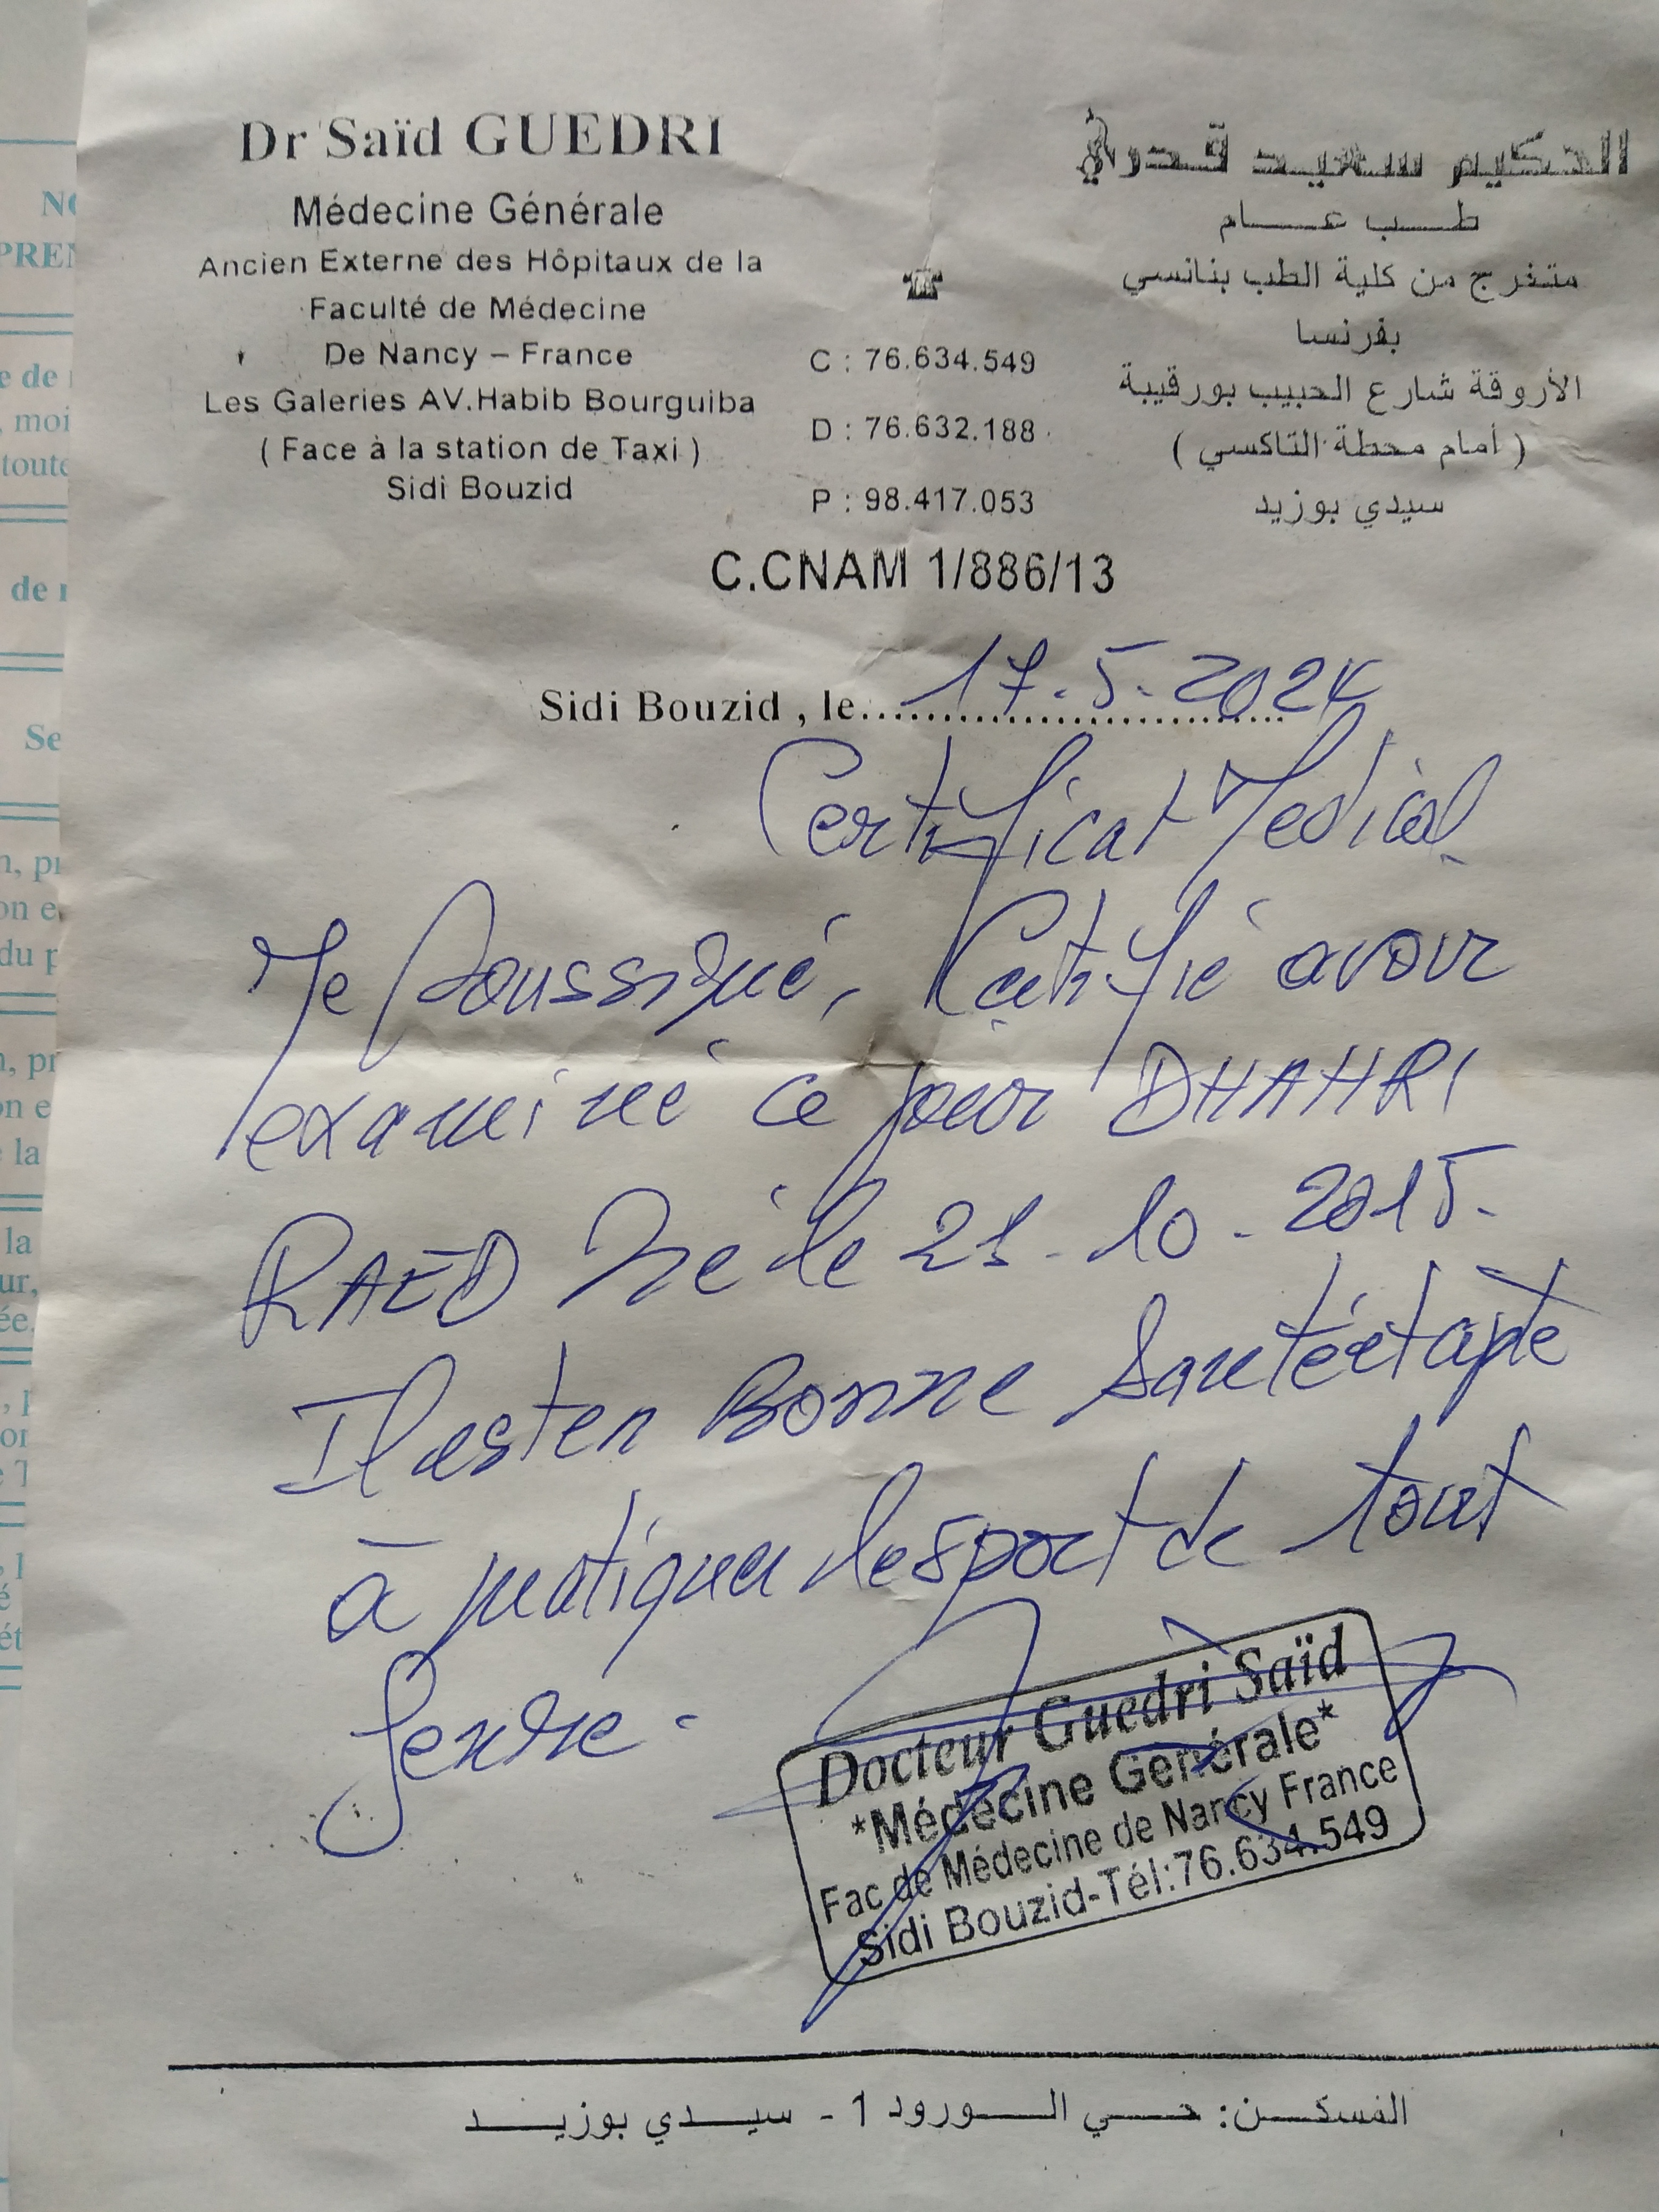 Dr Saïd GUEDRI
Médecine Générale
Ancien Externe des Hôpitaux de la
Faculté de Médecine
De Nancy – France
Les Galeries AV.Habib Bourguiba
( Face à la station de Taxi )
Sidi Bouzid
☎
C : 76.634.549
D : 76.632.188
P : 98.417.053
الحكيم سعيد قدري
طب عام
متخرج من كلية الطب بنانسي
بفرنسا
الأروقة شارع الحبيب بورقيبة
( أمام محطة التاكسي )
سيدي بوزيد
C.CNAM 1/886/13
Sidi Bouzid , le 17.5.2024
Certificat Medical
Je Soussigné, Certifié avoir
examiné ce jour DHAHRI
RAED Né le 21.10.2015.
Il est en Bonne Santé et apte
à pratiquer le sport de tout
Genre.
Docteur Guedri Saïd
*Médecine Générale*
Fac de Médecine de Nancy France
Sidi Bouzid-Tél:76.634.549
المسكن: حي الورود 1 - سيدي بوزيد
NO
PREN
e de
, moi
toute
de
Se
n, pr
on e
du p
n, pr
on e
la
la
ur,
ée.